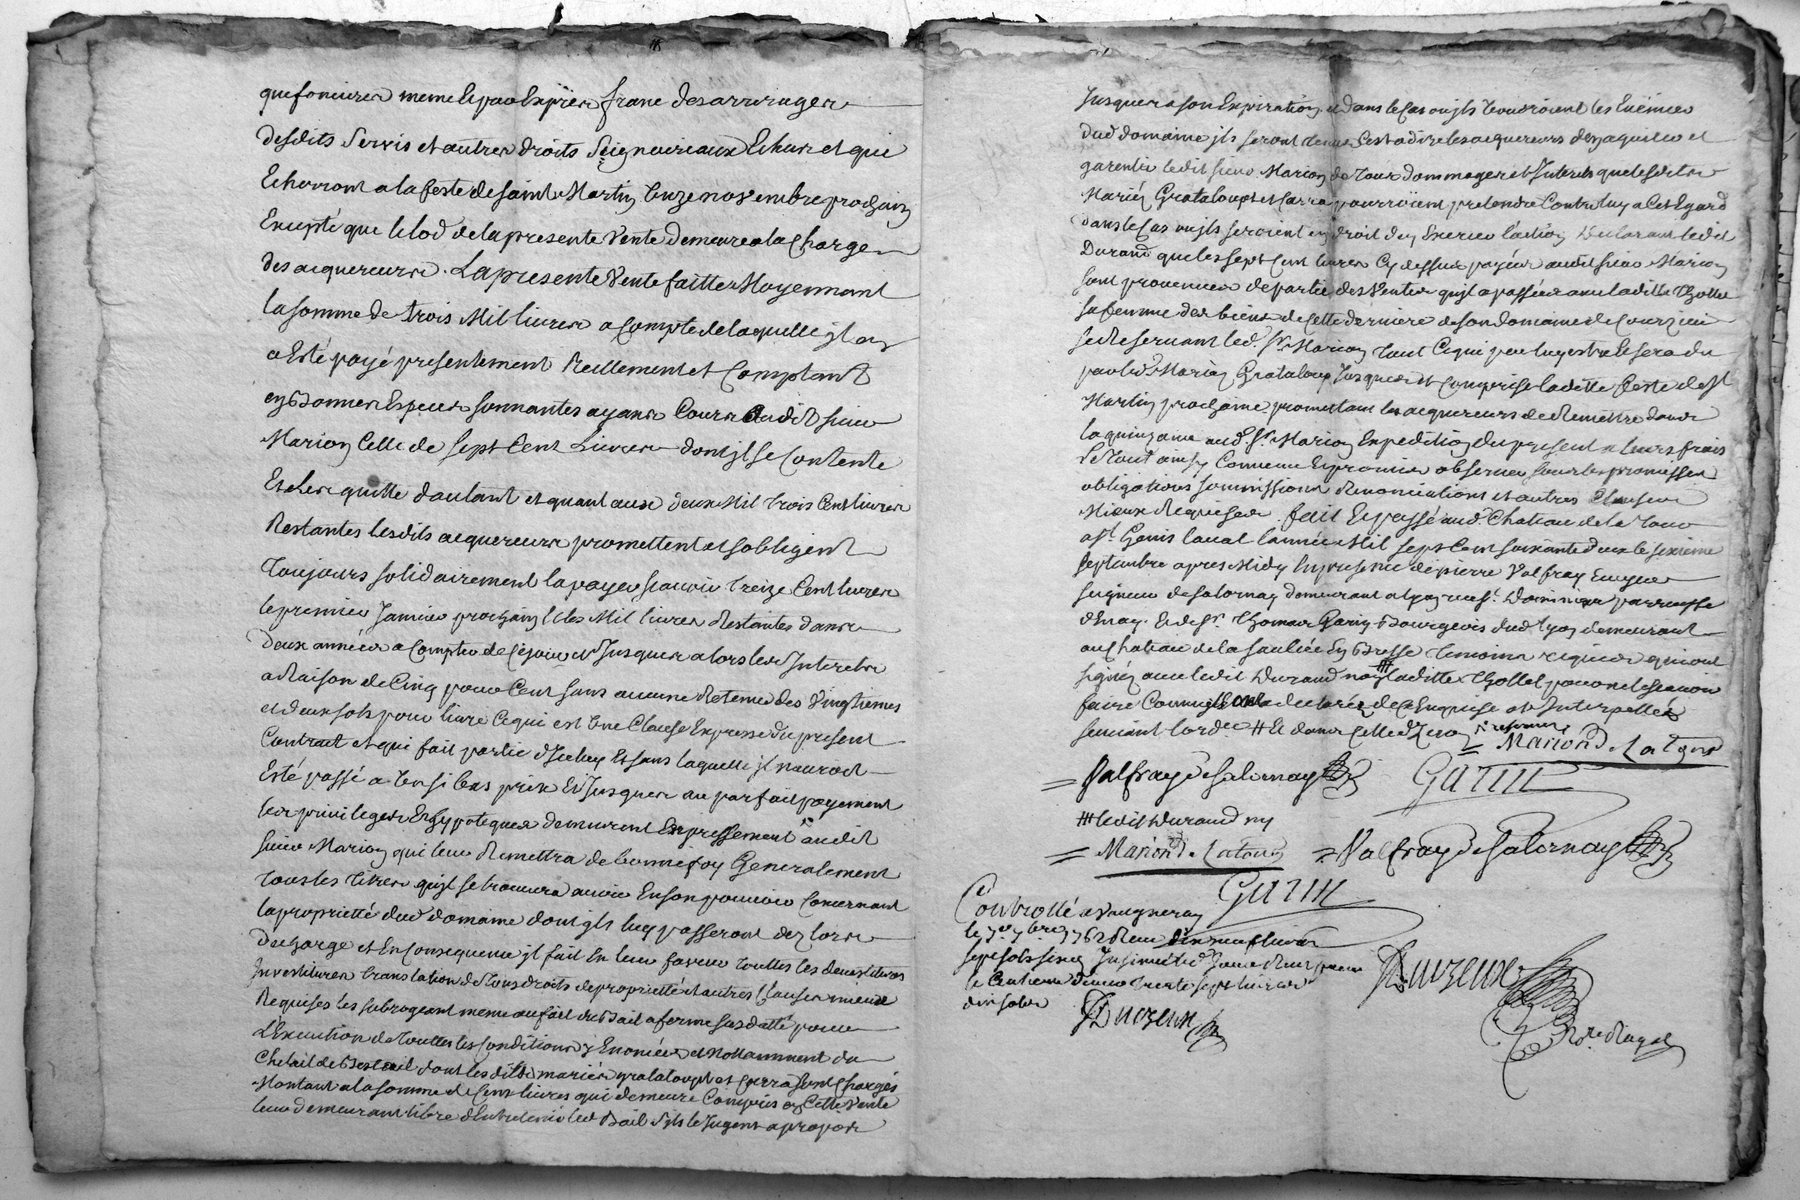 que fonciere meme le pao Expiree franc des arrerages
desdits Servis et autres droits Seigneuriaux Echus et qui
Echerront a la feste de saint Martin Unze novembre prochain
Excepté que le lod de la presente Vente demeure a la Charge
des acquereurs. La presente Vente faitte Moyennant
la somme de trois Mil livres a Compte de laquelle jl en
a Esté payé presentement Reellement et Comptant
en bonnes Especes sonnantes ayans Cours audit sieur
Marion Celle de sept Cent Livres dont jl se Contente
Et les quitte dautant et quant aux deux Mil trois Cent livres
Restantes lesdits acquereurs promettent et sobligent
Toujours solidairement la payer scauoir treize Cent livres
le premier Janvier prochain Et les Mil livres Restantes dans
deux années a Compter de ce jour et Jusques alors les Interets
a Raison de Cinq pour Cent sans aucune Retenue des Vingtiemes
et deux sols pour livre Ce qui est Une Clause Expresse du present
Contract et qui fait partie d'Iceluy Et sans laquelle jl nauroit
Esté passé a Un si bas prix Et Jusques au parfait payement
les privileges Et hypoteques demeurent Expressement audit
sieur Marion qui leur Remettra de bonne foy Generalement
Tous les titres qu'jl se trouvera avoir En son pouvoir Concernant
la proprietté dud domaine dont jls luy passeront dez lors
decharge et En Consequence jl fait En leur faveur touttes les devestitures
Investitures translation de Tous droits de proprietté et autres Clauses mieux
Requises les subrogeant meme au fait du Bail a ferme susdatté pour
L'Execution de Touttes les Conditions y Enoncées et Nottamment du
Cheptail de Bestail dont lesdits mariés grataloupt et Carra sont Chargés
Montant a la somme de Cent livres qui demeure Compris en Cette Vente
leur demeurant libre d'Entretenir led Bail s'jls le Jugent a propos
Jusques a son Expiration et dans le Cas ou jls Voudroient les Evincer
dud domaine jls seront tenus C'est a dire les acquereurs d'en aquitter et
garentir ledit sieur Marion de tous dommages et Interets que lesdits
Mariés Grataloupt et Carra pourroient pretendre Contre luy a Cet Egard
dans le Cas ou jls seroient en droit d'en Exercer l'action Declarant ledit
Durand que les sept Cent livres Cy dessus payées audit sieur Marion
sont provenues de partie des Ventes qu'jl a passées avec laditte Thollet
sa femme des biens de Cette derniere de son domaine de Courzieu
se Reservant led. Sr. Marion tout Ce qui peut luy estre et sera du
par lesd. Mariés Grataloup Jusques et Comprise laditte feste de st
Martin prochaine promettans les acquereurs de Remettre dans
la quinzaine aud. Sr. Marion Expedition du present a leurs frais
Le Tout ainsy Convenu Et promis observer sous les promesses
obligations soumissions Renonciations et autres Clauses
Mieux Requises. fait Et passé aud. Chateau de la Tour
a St. Genis laval l'année Mil sept Cent soixante deux le sixieme
septembre apres Midy En presence de pierre Valfray Ecuyer
seigneur de Salornay demeurant a Lyon rue St. Dominique parroisse
d'Enay. Et de Sr. Thomas Garin Bourgeois dud. Lyon demeurant
au Chateau de la saulsée En Bresse Temoins requis qui ont
signés avec ledit Durand non laditte Thollet pour ne le scavoir
faire Comme Elle a declaré de ce Enquise et Interpellée
suivant l'ord.ce
= Marion D. La Tour
= Valfray de Salornay
Garin
# ledit Durand ny
= Marion D. Latour = Valfray de Salornay
Garin
Controllé a Vaugneray
le 7e. 7bre 1762 Reçu dix neuf livres
sept sols
le Centieme denier trente sept livres
dix sols
Duvzeux
Duvzeux